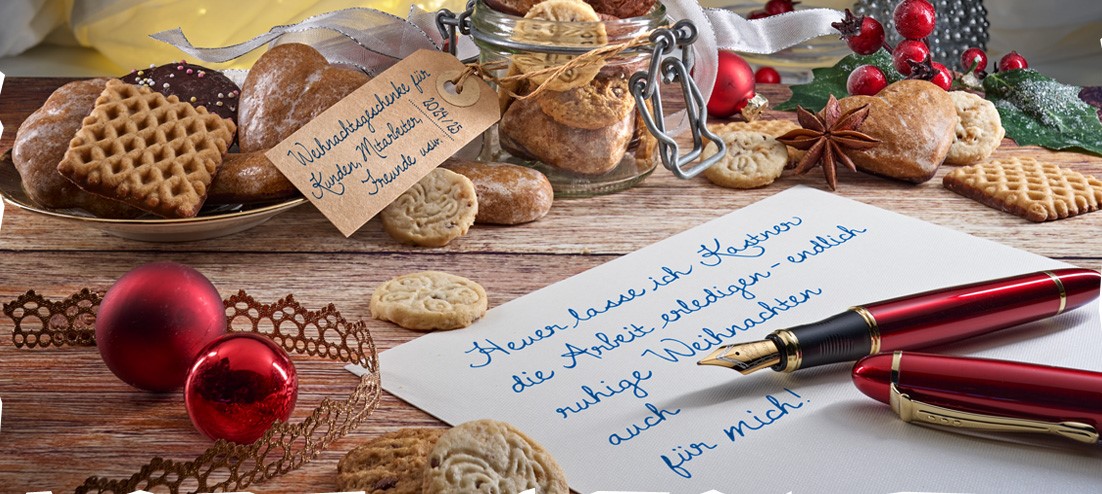 Weihnachtsgeschenke für
Kunden, Mitarbeiter,
Freunde usw.
2024/25
Heuer lasse ich Kastner
die Arbeit erledigen - endlich
ruhige Weihnachten
auch
für mich!